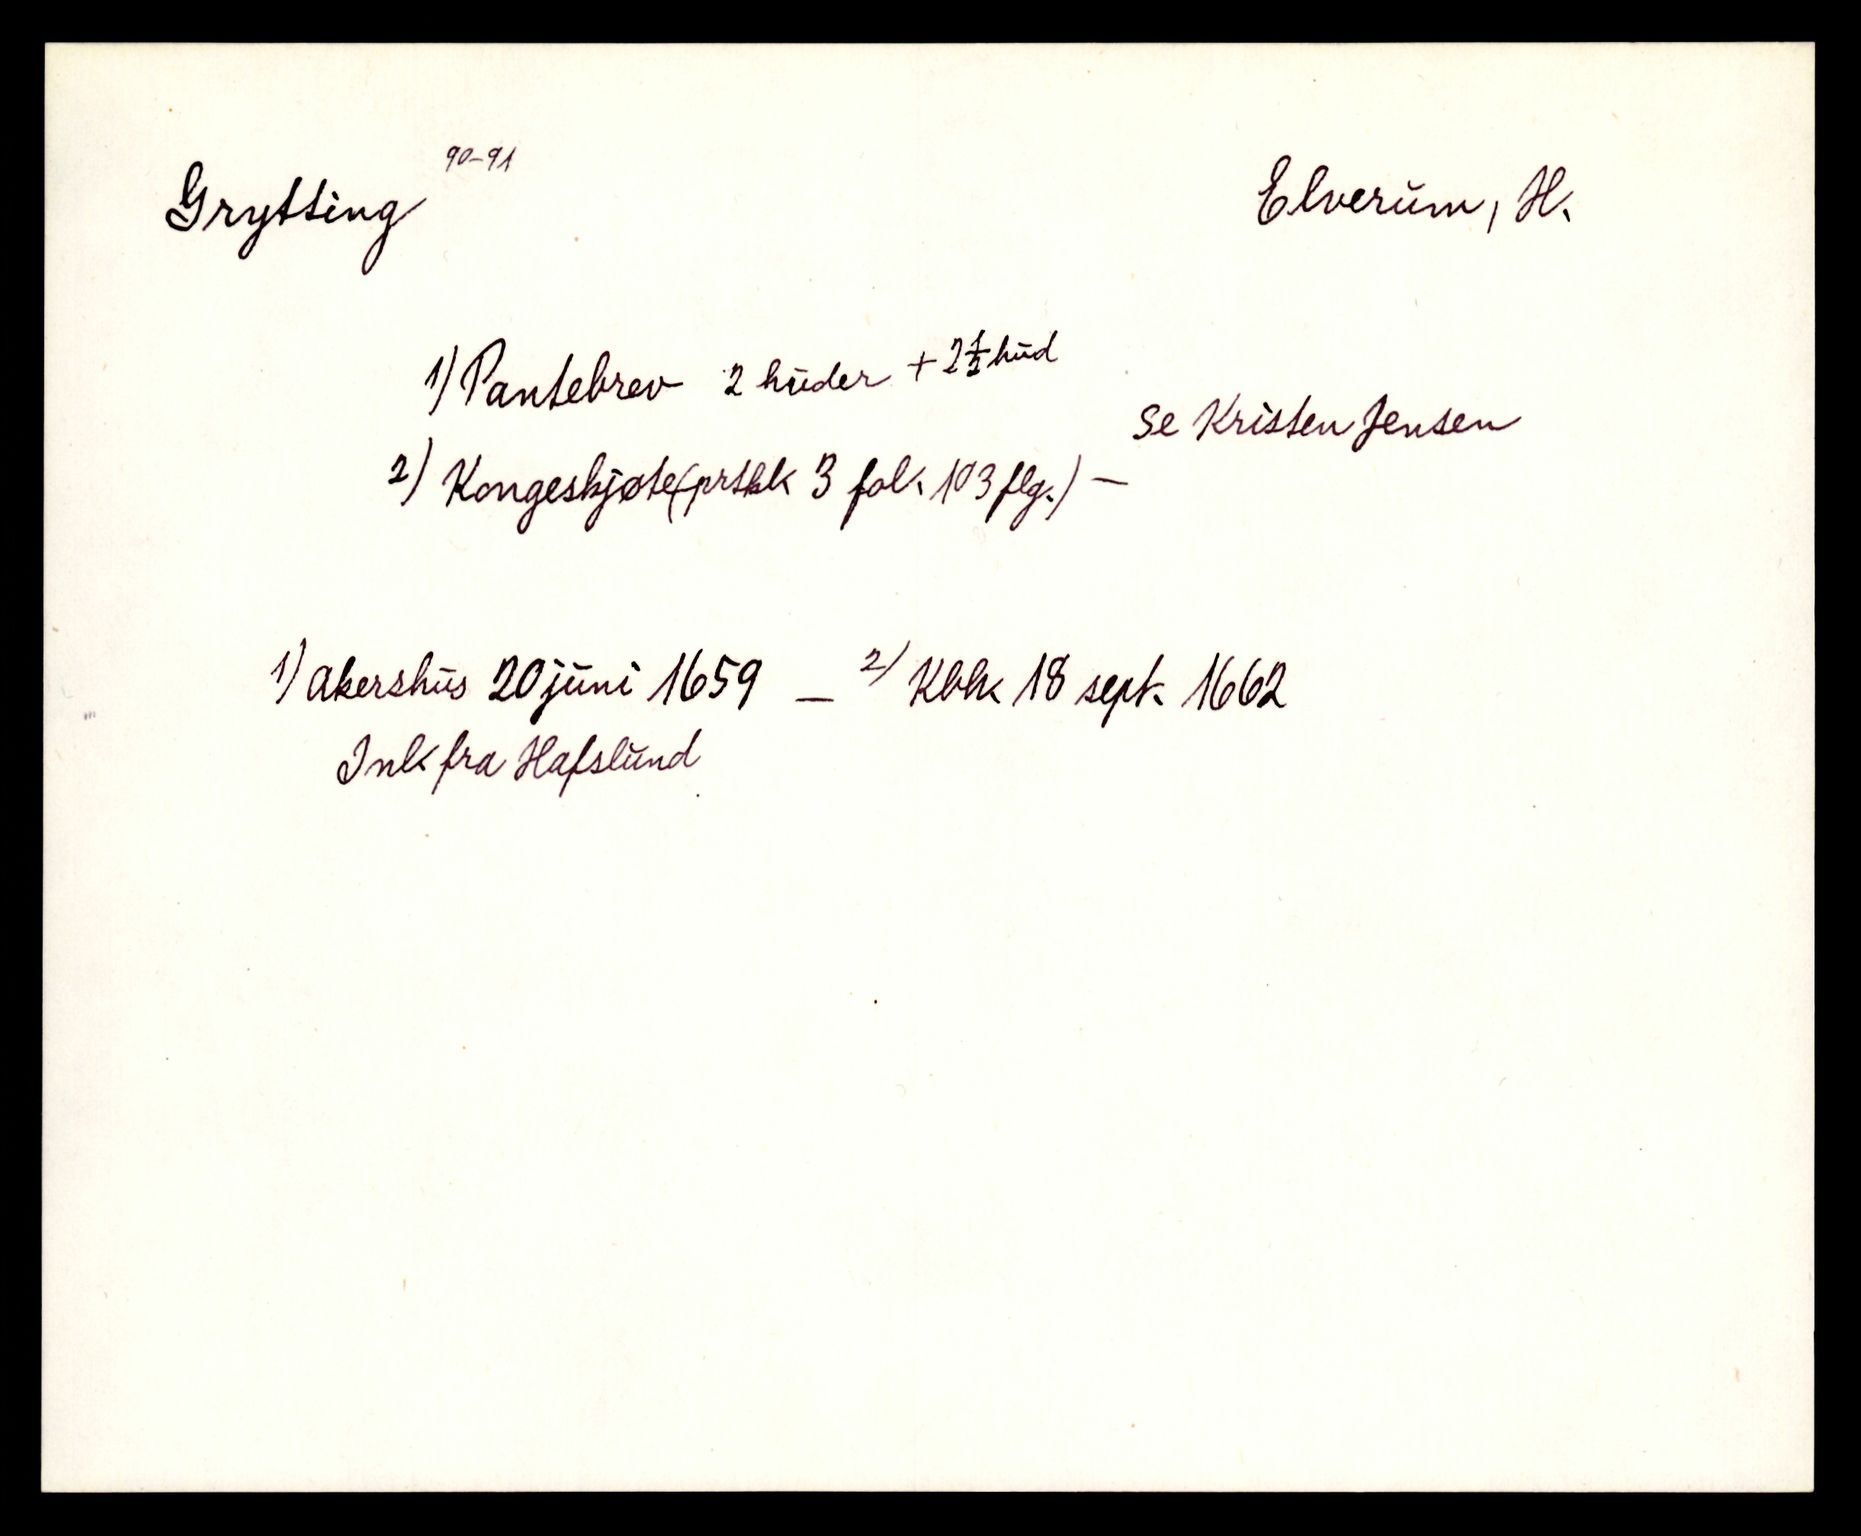 Grytting 90-91 Elverum, H.
1) Pantebrev 2 huder + 2 1/2 hud
Se Kristen Jensen
2) Kongeskjøte (prtkk 3 fol. 103 flg.) —
1) Akershus 20 juni 1659 — 2) Kbhk 18 sept. 1662
Ink fra Hafslund